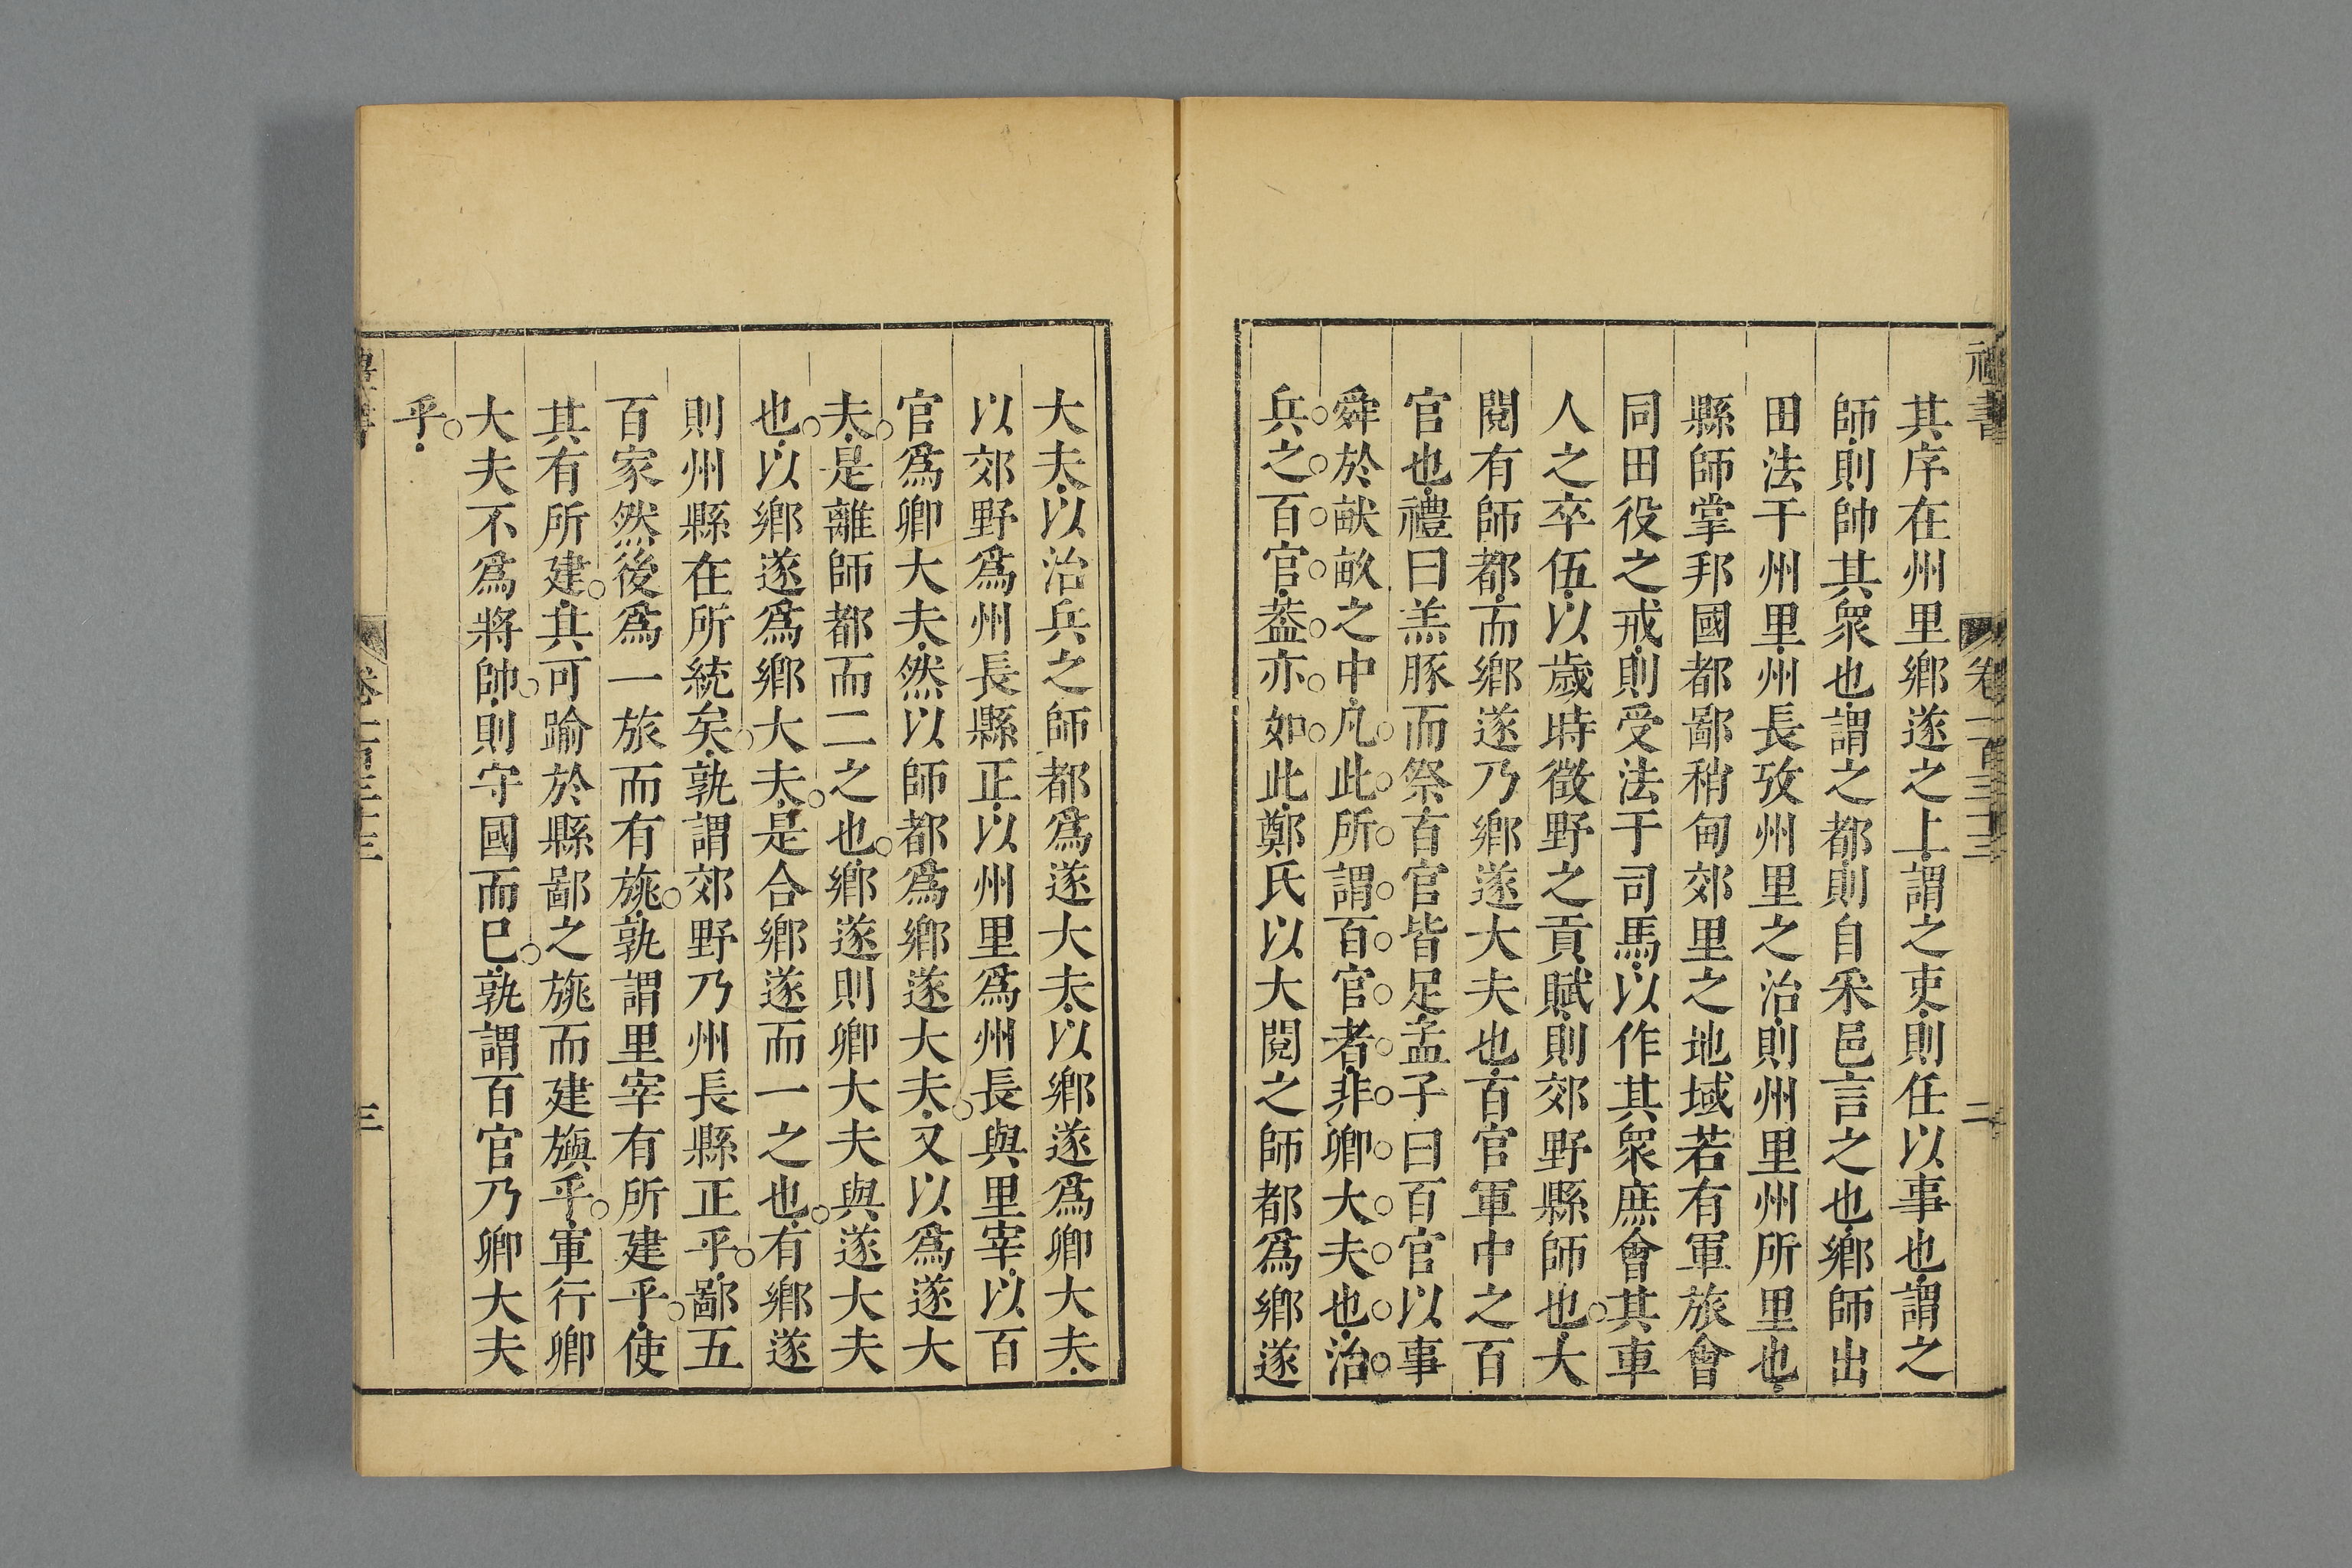 禮書 卷一百三十三 二
其序在州里鄉遂之上謂之吏則任以事也謂之
師則帥其衆也謂之都則自采邑言之也鄉師出
田法于州里州長攷州里之治則州里州所里也
縣師掌邦國都鄙稍甸郊里之地域若有軍旅會
同田役之戒則受法于司馬以作其衆庶會其車
人之卒伍以歲時徵野之貢賦則郊野縣師也大
閱有師都而鄉遂乃鄉遂大夫也百官軍中之百
官也禮曰羔豚而祭百官皆足孟子曰百官以事
舜於畎畝之中凡此所謂百官者非卿大夫也治
兵之百官葢亦如此鄭氏以大閱之師都爲鄉遂
大夫以治兵之師都爲遂大夫以鄉遂爲卿大夫
以郊野爲州長縣正以州里爲州長與里宰以百
官爲卿大夫然以師都爲鄉遂大夫又以爲遂大
夫是離師都而二之也鄉遂則卿大夫與遂大夫
也以鄉遂爲鄉大夫是合鄉遂而一之也有鄉遂
則州縣在所統矣孰謂郊野乃州長縣正乎鄙五
百家然後爲一旅而有旐孰謂里宰有所建乎使
其有所建其可踰於縣鄙之旐而建旟乎軍行卿
大夫不爲將帥則守國而已孰謂百官乃卿大夫
乎
三